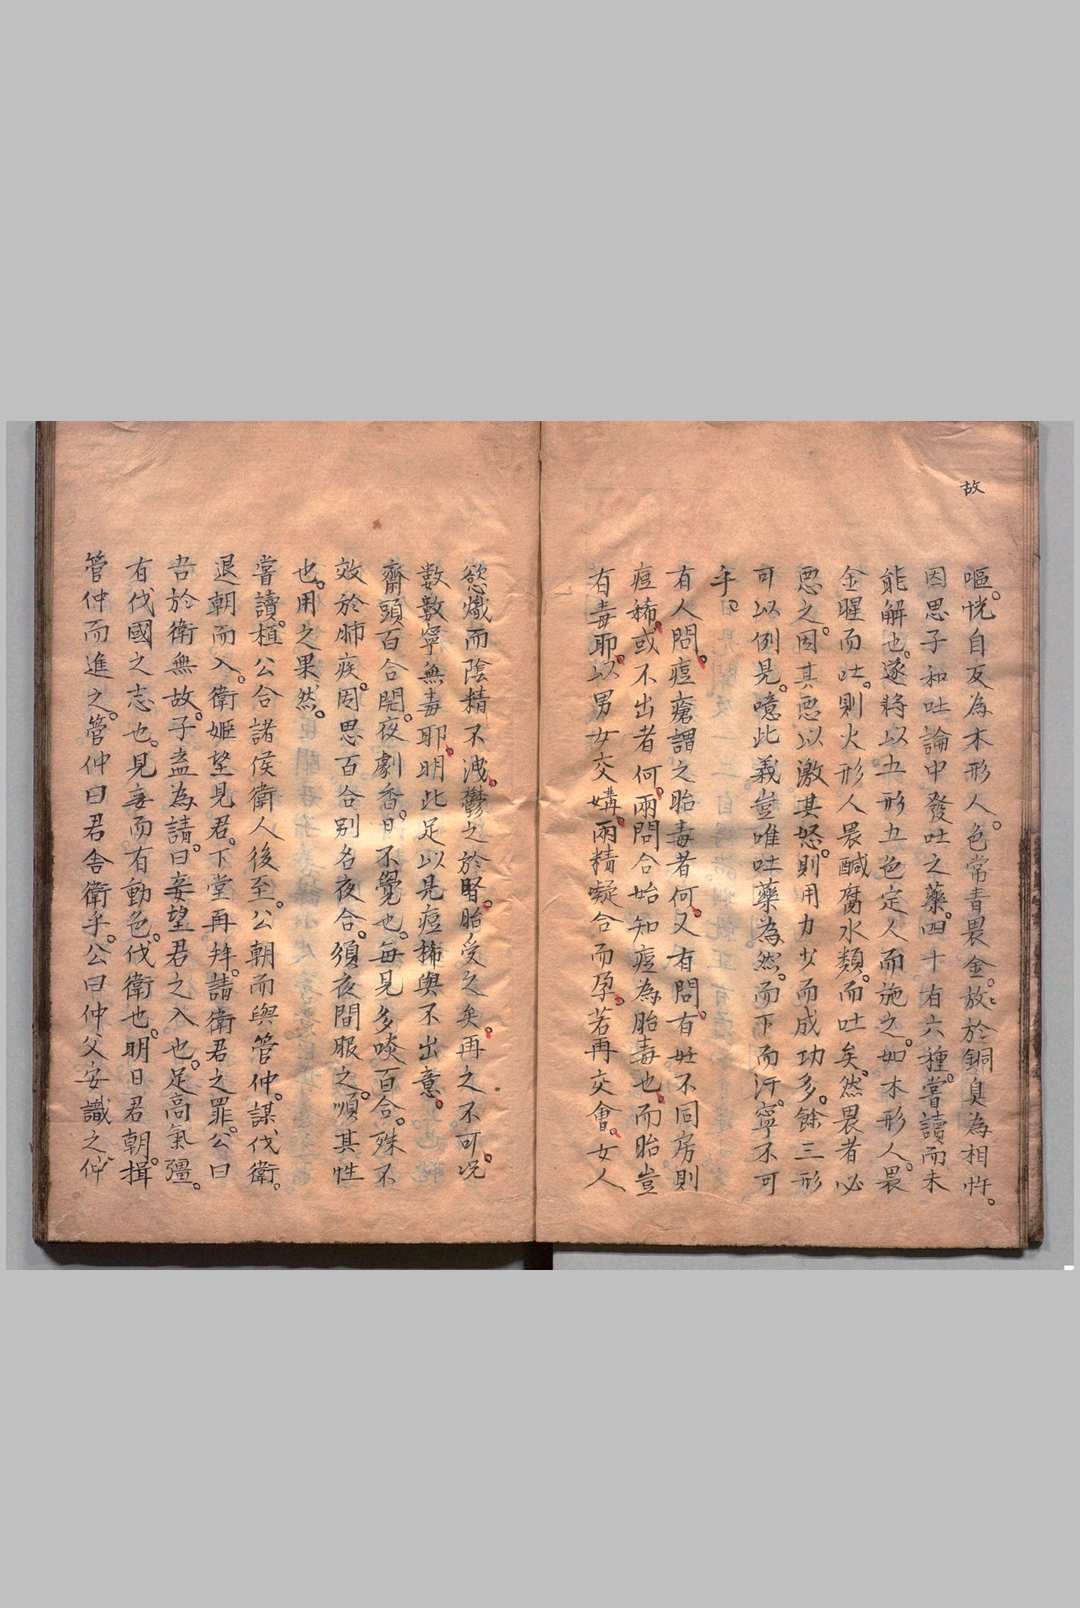 故
嘔。恍自反為木形人。色常青畏金。故於銅臭為相忤。
因思子和吐論中發吐之藥。四十有六種。嘗讀而未
能解也。遂將以五形五色定人而施之。如木形人。畏
金腥而吐。則火形人畏鹹腐水類。而吐矣。然畏者必
惡之。因其惡以激其怒。則用力少而成功多。餘三形
可以例見。噫此義豈唯吐藥為然。而下而汗。寧不可
乎。
有人問。痘瘡謂之胎毒者何。又有問。有妊不同房則
痘稀。或不出者何。兩問合始知痘為胎毒也。而胎豈
有毒耶。以男女交媾。兩精凝合而孕。若再交會。女人
慾熾而陰精不洩。鬱之於腎。胎受之矣。再之不可。况
數數寧無毒耶。明此足以見痘稀與不出意。
齋頭百合開。夜劇香。日不覺也。每見多啖百合。殊不
效於肺疾。因思百合別名夜合。須夜間服之。順其性
也。用之果然。
嘗讀。桓公合諸侯衛人後至。公朝而與管仲。謀伐衛。
退朝而入。衛姬望見君。下堂再拜。請衛君之罪。公曰
吾於衛無故。子盍為請。曰妾望君之入也。足高氣彊。
有伐國之志也。見妾而有動色。伐衛也。明日君朝。揖
管仲而進之。管仲曰君舎衛乎。公曰仲父安識之仲